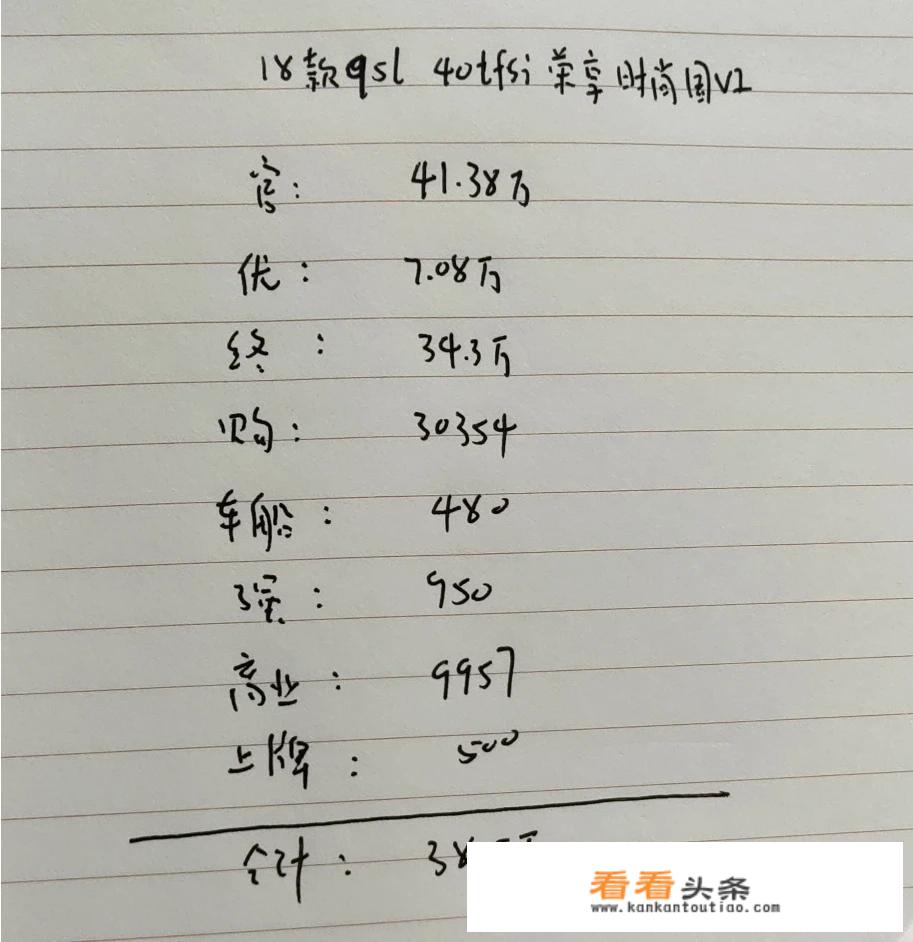 18款q5l 40tfsi 荣享时尚国VI
官: 41.38万
优: 7.08万
终: 34.3万
购: 30354
车船: 480
强: 950
商业: 9957
上牌: 500
合计: 38
看看头条
www.kankantoutiao.com